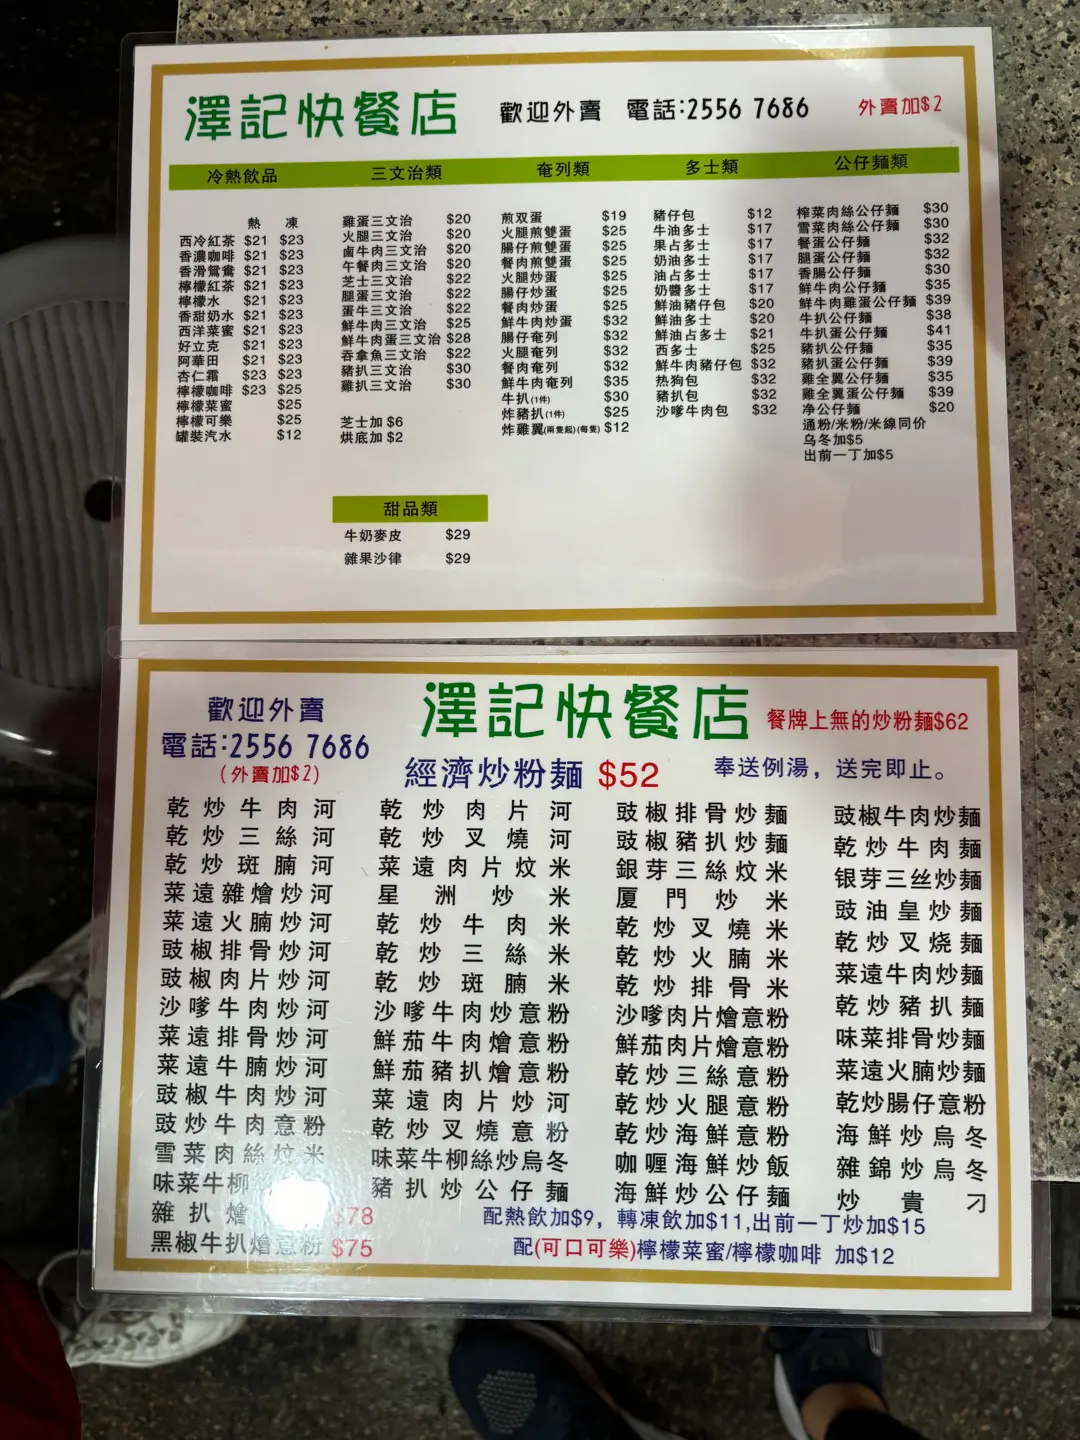 澤記快餐店 歡迎外賣 電話:2556 7686 外賣加$2
冷熱飲品
熱 凍
西冷紅茶 $21 $23
香濃咖啡 $21 $23
香滑鴛鴦 $21 $23
檸檬紅茶 $21 $23
檸檬水 $21 $23
香甜奶水 $21 $23
西洋菜蜜 $21 $23
好立克 $21 $23
阿華田 $21 $23
杏仁霜 $23 $23
檸檬咖啡 $23 $25
檸檬菜蜜 $25
檸檬可樂 $25
罐裝汽水 $12
三文治類
雞蛋三文治 $20
火腿三文治 $20
鹵牛肉三文治 $20
午餐肉三文治 $20
芝士三文治 $22
腿蛋三文治 $22
蛋牛三文治 $22
鮮牛肉三文治 $25
鮮牛肉蛋三文治 $28
吞拿魚三文治 $22
豬扒三文治 $30
雞扒三文治 $30
芝士加 $6
烘底加 $2
甜品類
牛奶麥皮 $29
雜果沙律 $29
奄列類
煎双蛋 $19
火腿煎雙蛋 $25
腸仔煎雙蛋 $25
餐肉煎雙蛋 $25
火腿炒蛋 $25
腸仔炒蛋 $25
餐肉炒蛋 $25
鮮牛肉炒蛋 $32
腸仔奄列 $32
火腿奄列 $32
餐肉奄列 $32
鮮牛肉奄列 $35
牛扒(1件) $30
炸豬扒(1件) $25
炸雞翼(兩隻起)(每隻) $12
多士類
豬仔包 $12
牛油多士 $17
果占多士 $17
奶油多士 $17
油占多士 $17
奶醬多士 $17
鮮油豬仔包 $20
鮮油多士 $20
鮮油占多士 $21
西多士 $25
鮮牛肉豬仔包 $32
热狗包 $32
豬扒包 $32
沙嗲牛肉包 $32
公仔麵類
榨菜肉絲公仔麵 $30
雪菜肉絲公仔麵 $30
餐蛋公仔麵 $32
腿蛋公仔麵 $32
香腸公仔麵 $30
鮮牛肉公仔麵 $35
鮮牛肉雞蛋公仔麵 $39
牛扒公仔麵 $38
牛扒蛋公仔麵 $41
豬扒公仔麵 $35
豬扒蛋公仔麵 $39
雞全翼公仔麵 $35
雞全翼蛋公仔麵 $39
净公仔麵 $20
通粉/米粉/米線同价
乌冬加$5
出前一丁加$5
歡迎外賣
電話:2556 7686
(外賣加$2)
澤記快餐店 餐牌上無的炒粉麵$62
經濟炒粉麵 $52 奉送例湯，送完即止。
乾炒牛肉河
乾炒三絲河
乾炒斑腩河
菜遠雜燴炒河
菜遠火腩炒河
豉椒排骨炒河
豉椒肉片炒河
沙嗲牛肉炒河
菜遠排骨炒河
菜遠牛腩炒河
豉椒牛肉炒河
豉炒牛肉意粉
雪菜肉絲炆米
味菜牛柳
雜扒燴 $78
黑椒牛扒燴意粉 $75
乾炒肉片河
乾炒叉燒河
菜遠肉片炆米
星洲炒米
乾炒牛肉米
乾炒三絲米
乾炒斑腩米
沙嗲牛肉炒意粉
鮮茄牛肉燴意粉
鮮茄豬扒燴意粉
菜遠肉片炒河
乾炒叉燒意粉
味菜牛柳絲炒烏冬
豬扒炒公仔麵
豉椒排骨炒麵
豉椒豬扒炒麵
銀芽三絲炆米
厦門炒米
乾炒叉燒米
乾炒火腩米
乾炒排骨米
沙嗲肉片燴意粉
鮮茄肉片燴意粉
乾炒三絲意粉
乾炒火腿意粉
乾炒海鮮意粉
咖喱海鮮炒飯
海鮮炒公仔麵
豉椒牛肉炒麵
乾炒牛肉麵
银芽三丝炒麵
豉油皇炒麵
乾炒叉烧麵
菜遠牛肉炒麵
乾炒豬扒麵
味菜排骨炒麵
菜遠火腩炒麵
乾炒腸仔意粉
海鮮炒烏冬
雜錦炒烏冬
炒貴刁
配熱飲加$9，轉凍飲加$11,出前一丁炒加$15
配(可口可樂)檸檬菜蜜/檸檬咖啡 加$12